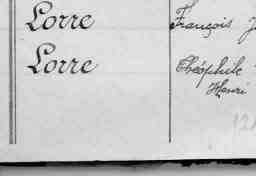 Lorre François
Lorre Théophile
Henri